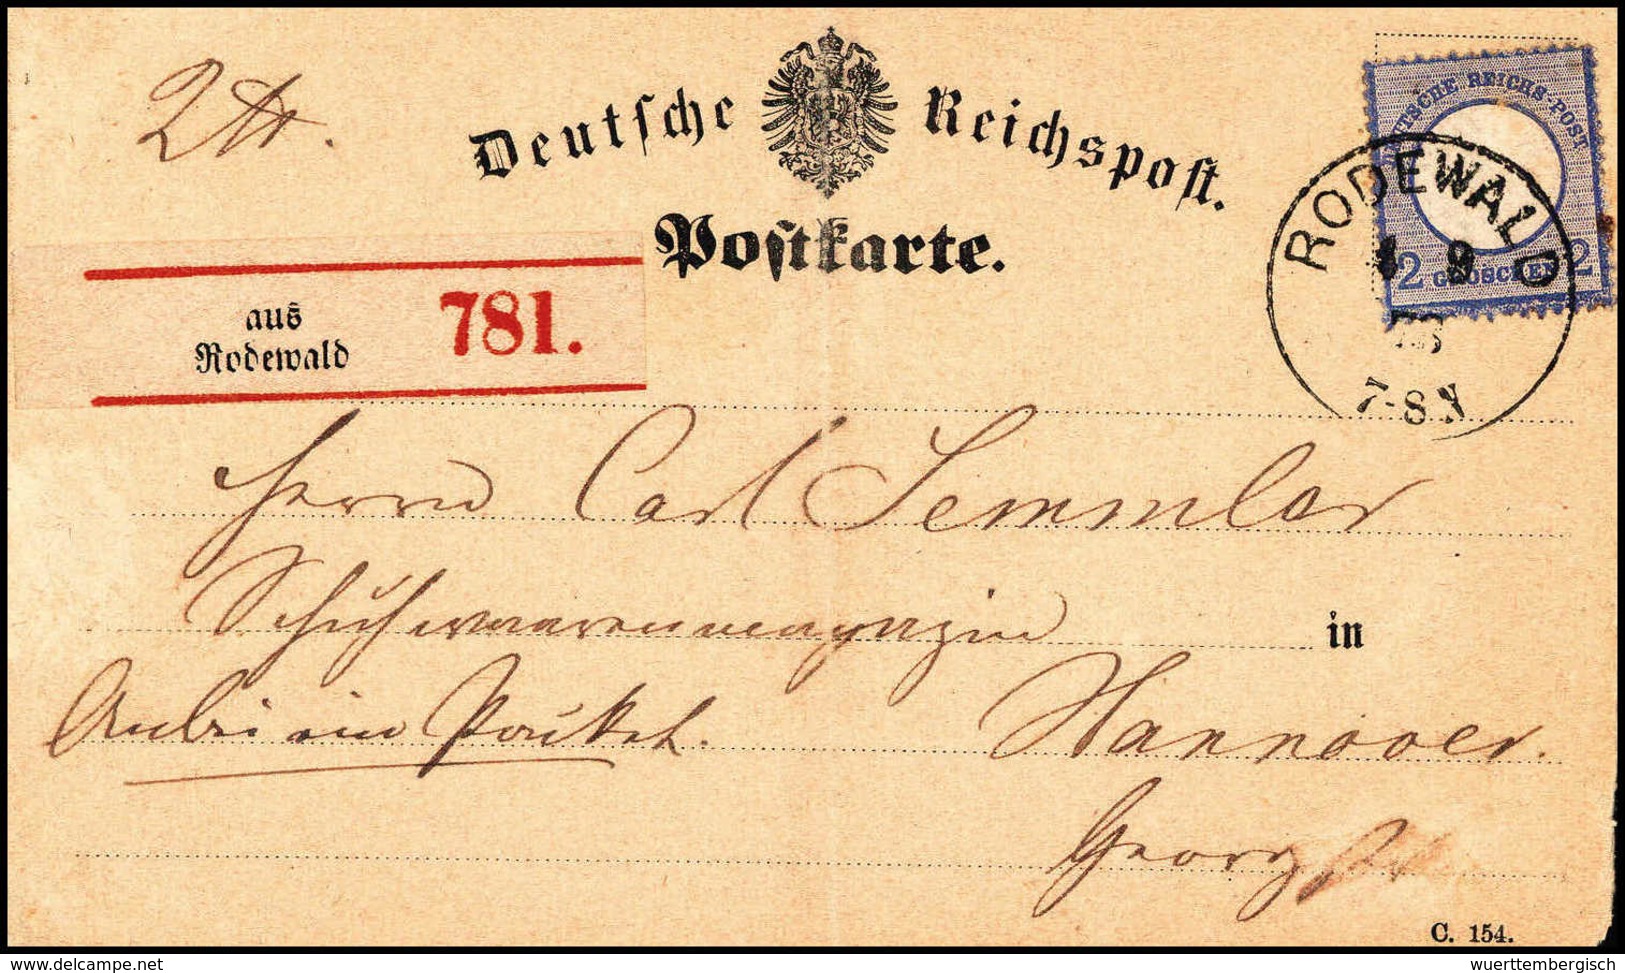 2 ℔.
Deutsche Reichspost.
Postkarte.
DEUTSCHE REICHS-POST
2 GROSCHEN 2
RODEWALD
9
73
7-8 N
aus
Rodewald
781.
Herrn Carl Semmler
Schuhwaarenmagazin
in
Anbei ein Packet.
Hannover.
Georg
C. 154.
delcampe.net
wuerttembergisch